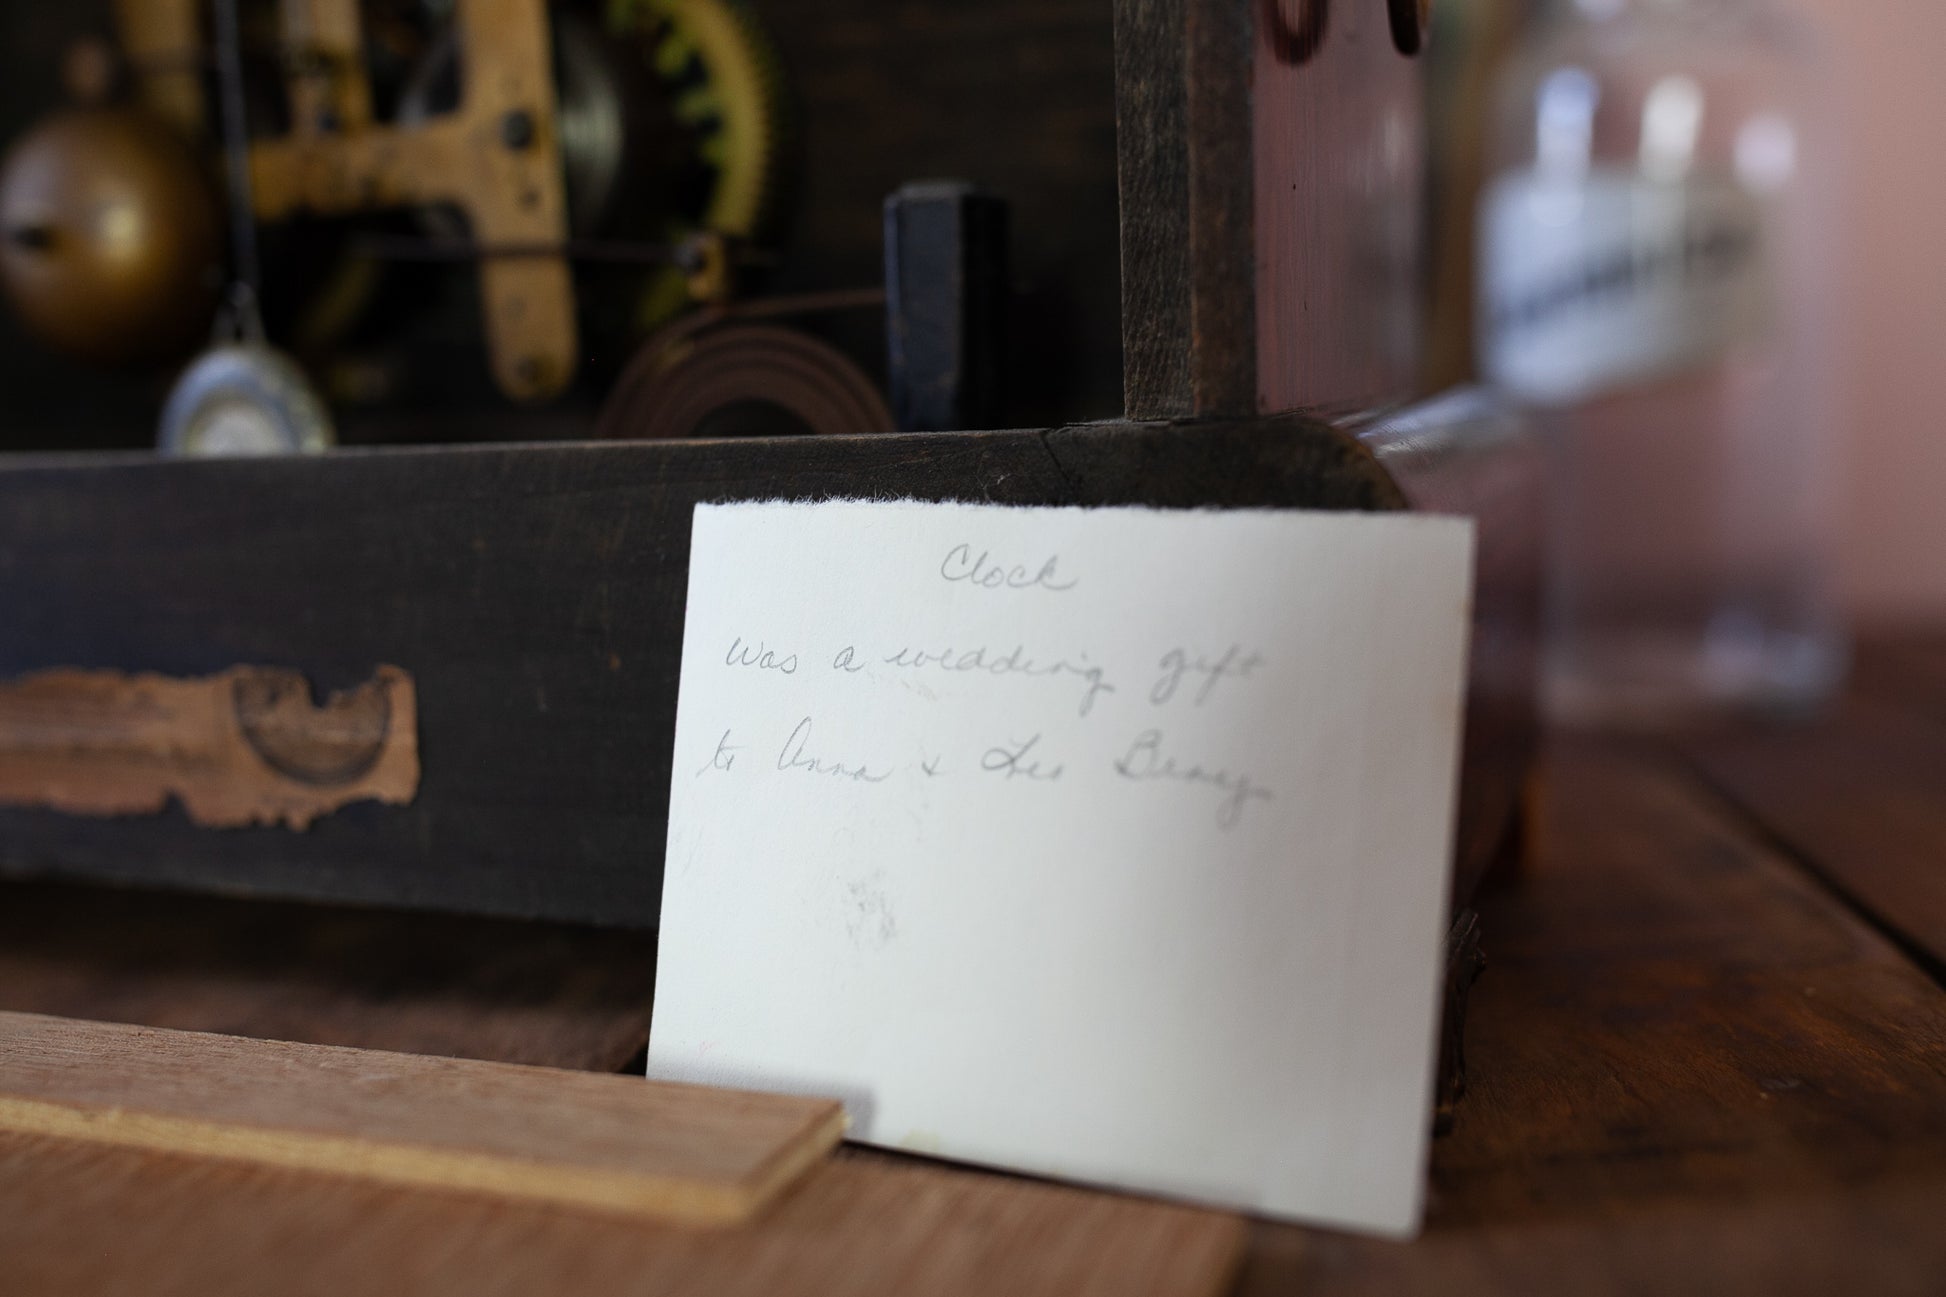 Clock
Was a wedding gift
to Anna + Les Beney